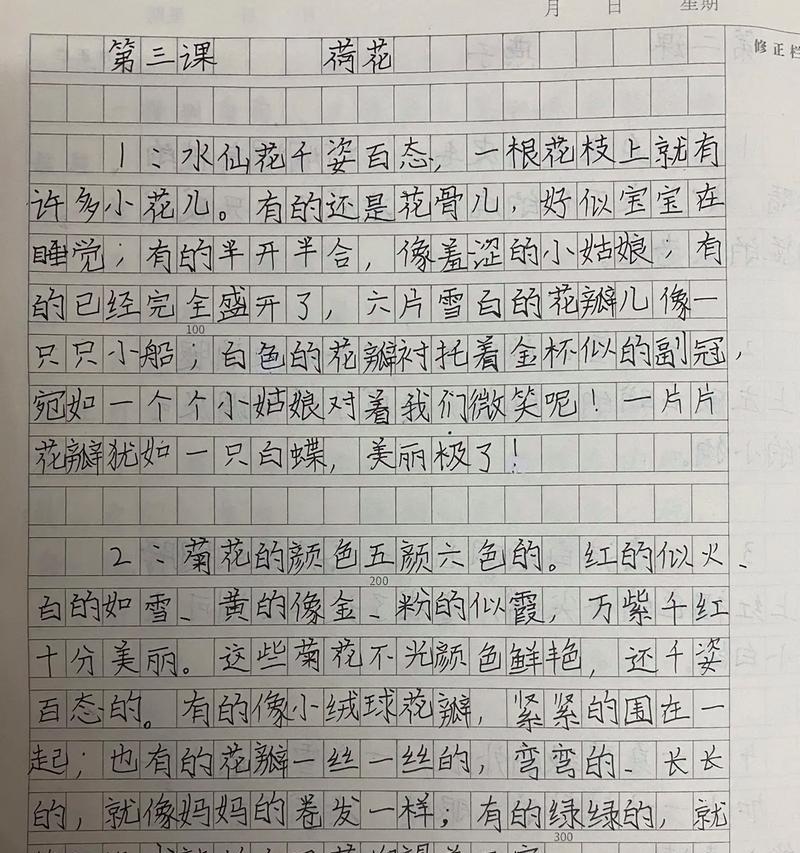 月 日 星期
修正栏
第三课 荷花
1：水仙花千姿百态，一根花枝上就有
许多小花儿。有的还是花骨儿，好似宝宝在
睡觉；有的半开半合，像羞涩的小姑娘；有
的已经完全盛开了，六片雪白的花瓣儿像一
100
只只小船；白色的花瓣衬托着金杯似的副冠，
宛如一个个小姑娘对着我们微笑呢！一片片
花瓣犹如一只白蝶，美丽极了！
2：菊花的颜色五颜六色的。红的似火、
200
白的如雪、黄的像金、粉的似霞，万紫千红
十分美丽。这些菊花不光颜色鲜艳，还千姿
百态的。有的像小绒球花瓣，紧紧的围在一
起；也有的花瓣一丝一丝的，弯弯的、长长
的，就像妈妈的卷发一样；有的绿绿的，就
300